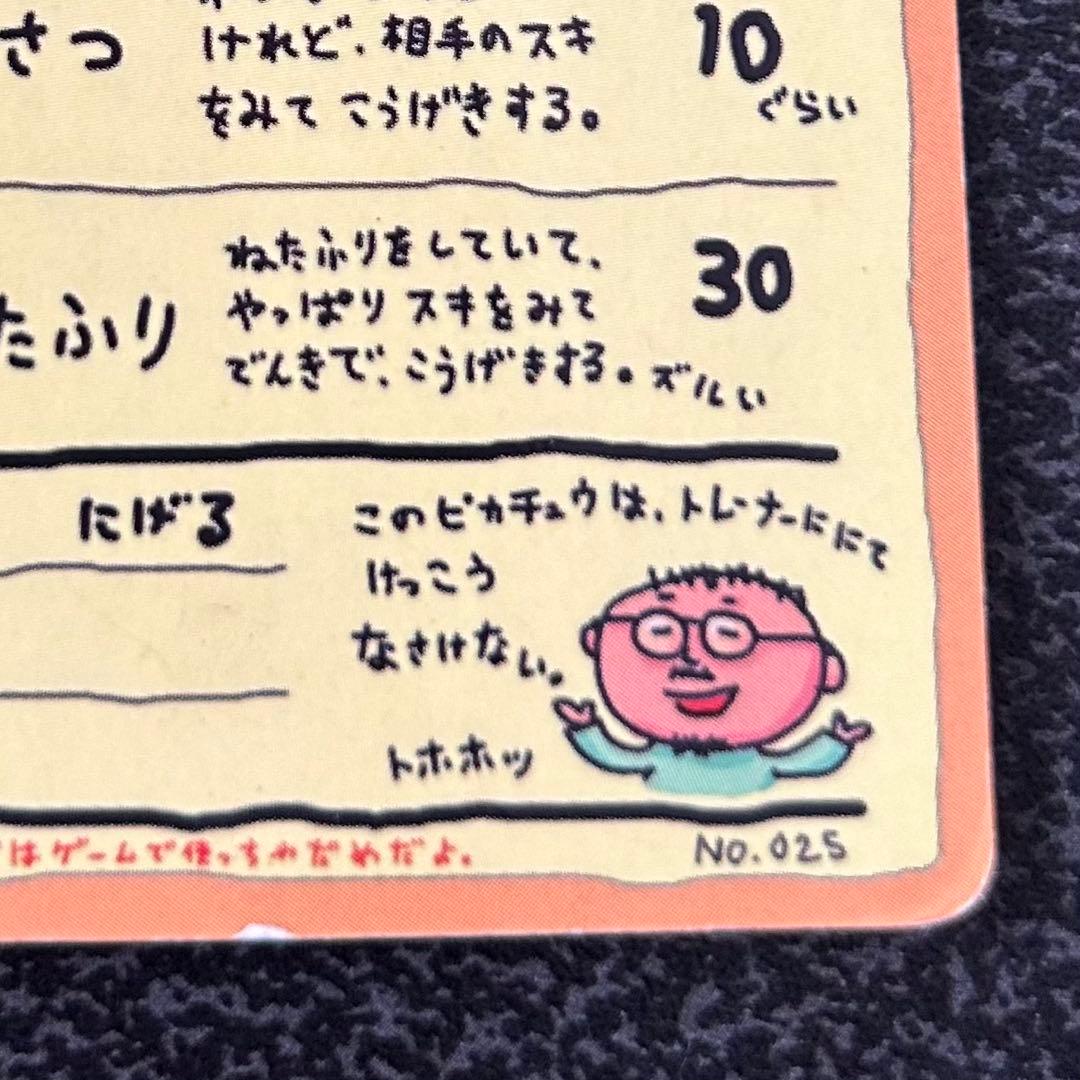 さつ
けれど、相手のスキ
をみて こうげきする。
10
ぐらい
たふり
ねたふりをしていて、
やっぱり スキをみて
でんきで、こうげきする。ズルい
30
にげる
このピカチュウは、トレーナーににて
けっこう
なさけない。
トホホッ
はゲームで使っちゃだめだよ。
No.025